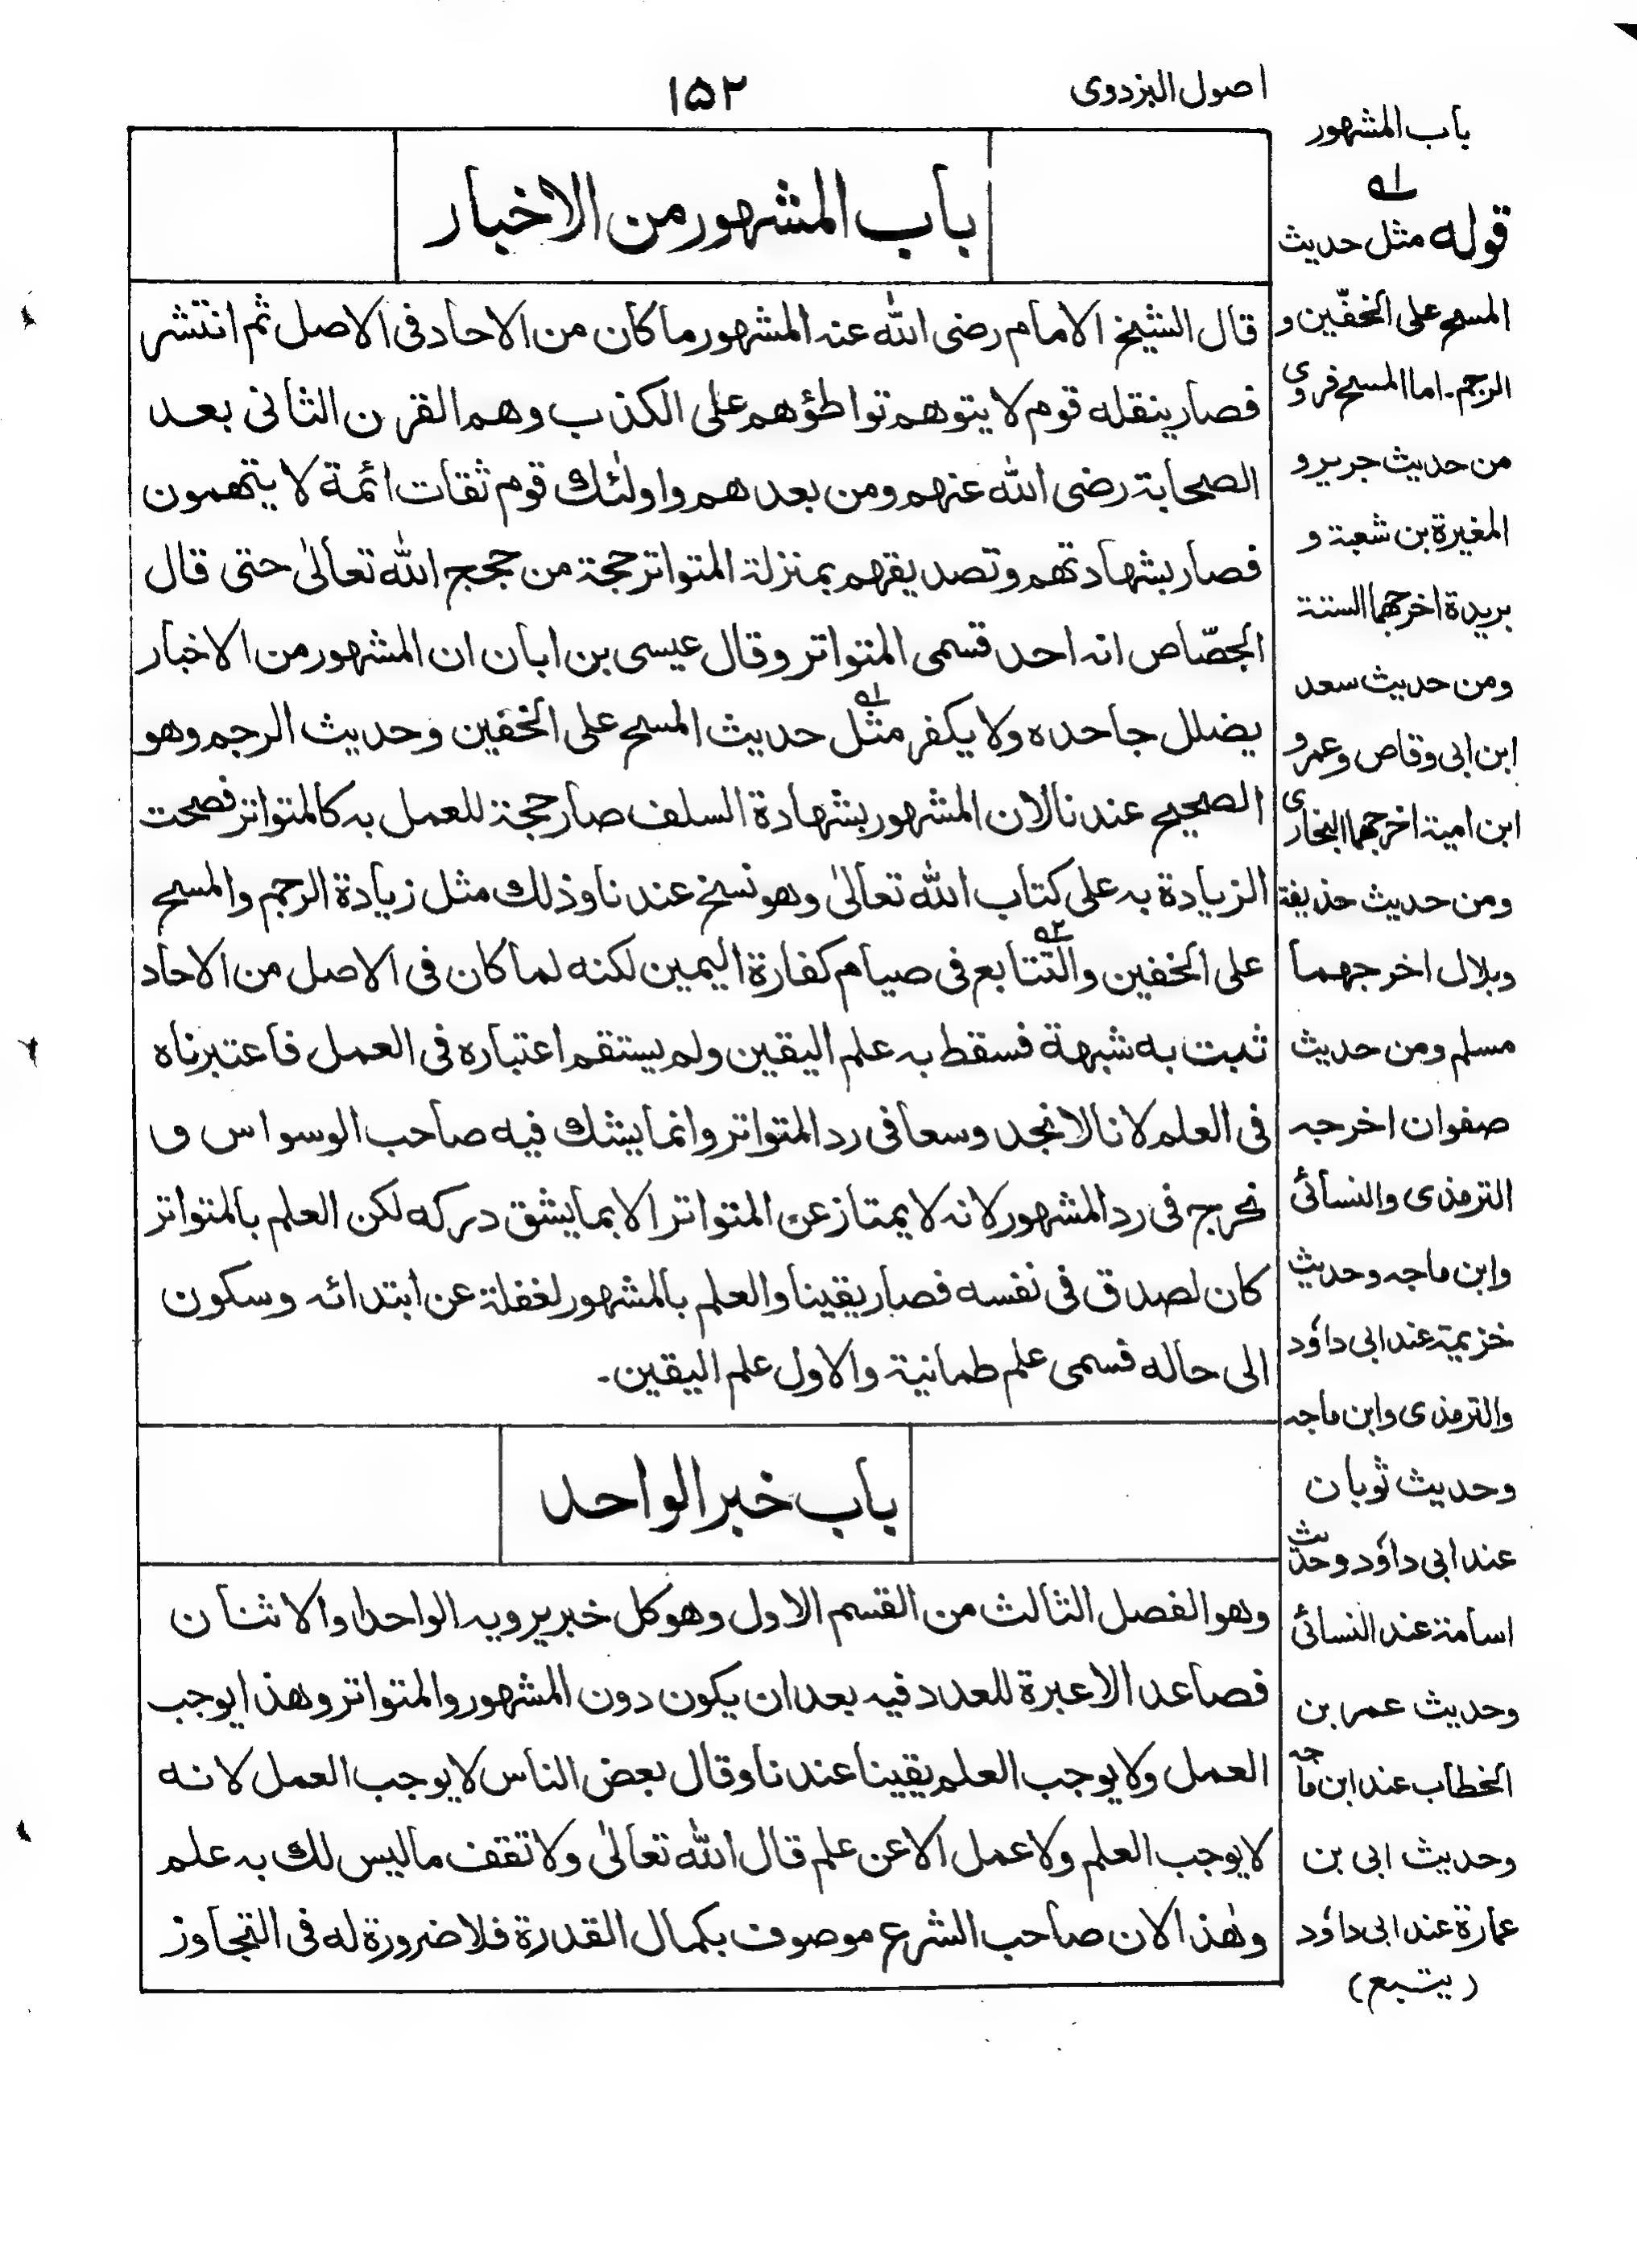 اصول البزدوى
١٥٢
باب المشهور
باب المشهور من الاخبار
قال الشيخ الامام رضى الله عنه المشهور ما كان من الاحاد فى الاصل ثم انتشر
فصار ينقله قوم لا يتوهم تواطؤهم على الكذب وهم القرن الثانى بعد
الصحابة رضى الله عنهم ومن بعدهم واولئك قوم ثقات ائمة لا يتهمون
فصار بشهادتهم وتصديقهم بمنزلة المتواتر حجة من حجج الله تعالىٰ حتى قال
الجصّاص انه احد قسمى المتواتر وقال عيسى بن ابان ان المشهور من الاخبار
يضلل جاحده ولا يكفر مثل ١ حديث المسح على الخفين وحديث الرجم وهو
الصحيح عندنا لان المشهور بشهادة السلف صار حجة للعمل به كالمتواتر فصحت
الزيادة به على كتاب الله تعالىٰ وهو نسخ عندنا وذلك مثل زيادة الرجم والمسح
على الخفين والتتابع ٢ فى صيام كفارة اليمين لكنه لما كان فى الاصل من الاحاد
ثبت به شبهة فسقط به علم اليقين ولم يستقم اعتباره فى العمل فاعتبرناه
فى العلم لانا لا نجد وسعا فى رد المتواتر وانما يشك فيه صاحب الوسواس و
نحرج فى رد المشهور لانه لا يمتاز عن المتواتر الا بما يشق دركه لكن العلم بالمتواتر
كان لصدق فى نفسه فصار يقينا والعلم بالمشهور لغفلة عن ابتدائه وسكون
الى حاله فسمى علم طمانية والاول علم اليقين۔
باب خبر الواحد
وهو الفصل الثالث من القسم الاول وهو كل خبر يرويه الواحد او الاثنان
فصاعدا لا عبرة للعدد فيه بعد ان يكون دون المشهور والمتواتر وهذا يوجب
العمل ولا يوجب العلم يقينا عندنا وقال بعض الناس لا يوجب العمل لانه
لا يوجب العلم ولا عمل الا عن علم قال الله تعالىٰ ولا تقف ما ليس لك به علم
وهٰذا لان صاحب الشرع موصوف بكمال القدرة فلا ضرورة له فى التجاوز
١
قوله مثل حديث
المسح على الخفّين و
الرجم۔ اما المسح فروى
من حديث جرير و
المغيرة بن شعبة و
بريدة اخرجهما الستة
ومن حديث سعد
ابن ابى وقاص وعمرو
ابن امية اخرجهما البخارى
ومن حديث حذيفة
وبلال اخرجهما
مسلم ومن حديث
صفوان اخرجه
الترمذى والنسائى
وابن ماجه وحديث
خزيمة عند ابى داؤد
والترمذى وابن ماجه
وحديث ثوبان
عند ابى داؤد وحديث
اسامة عند النسائى
وحديث عمر بن
الخطاب عند ابن ماجه
وحديث ابى بن
عمارة عند ابى داؤد
(يتبع)